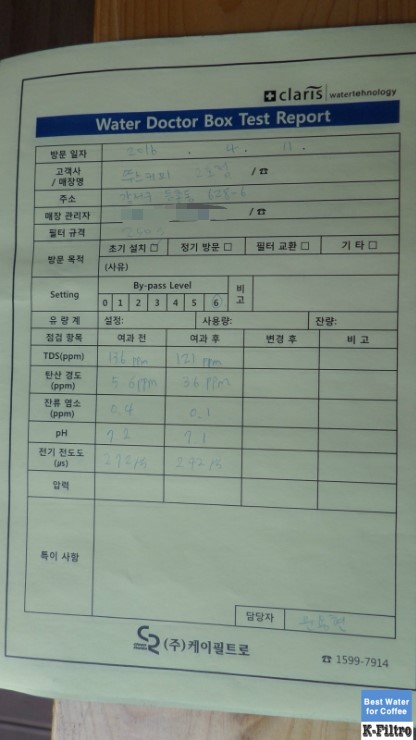 claris | watertehnology
Water Doctor Box Test Report
방문 일자 2016 . 4. 11.
고객사 / 매장명 / ☎
주소 강서구
매장 관리자 / ☎
필터 규격
방문 목적 초기 설치 □ 정기 방문 □ 필터 교환 □ 기 타 □
(사유)
Setting By-pass Level 비고
0 1 2 3 4 5 6
유 량 계 설정: 사용량: 잔량:
점검 항목 여과 전 여과 후 변경 후 비 고
TDS(ppm) 136 ppm 121 ppm
탄산 경도 (ppm) 36 ppm
잔류 염소 (ppm) 0.4 0.1
pH 7.2 7.1
전기 전도도 (㎲)
압력
특이 사항
담당자
(주)케이필트로
☎ 1599-7914
Best Water
for Coffee
K-Filtro